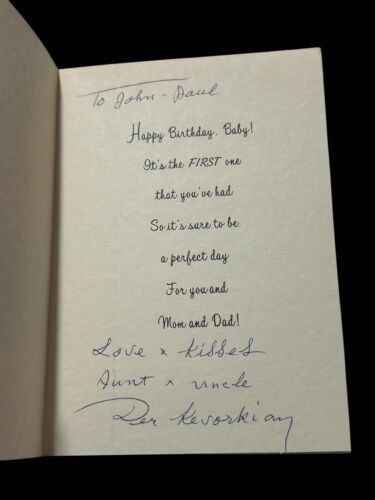 To John-Paul
Happy Birthday, Baby!
It's the FIRST one
that you've had
So it's sure to be
a perfect day
For you and
Mom and Dad!
Love x kisses
Aunt x uncle
Der Kevorkian